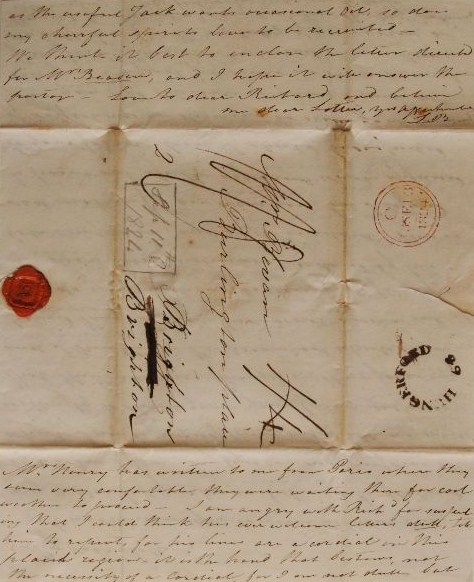 as the useful Jack wants occasional oil, so does
my cheerful spirits love to be recruited —
We think it best to enclose the letter directed
for Mrs Beavan, and I hope it will answer the
— Love to dear Richard, and believe
me dear
Mrs Bevan
Burlington place
Brighton
Brighton
1824
HUNGERFORD
Mrs Henry has written to me from Paris where they
seem very comfortable, they were waiting there for cool
weather to proceed — I am angry with Richd for
ing that I could think his ever welcome letters dull, tell
him to repent, for his lines are a cordial in this
placid region — it is the hand that bestows not
the necessity of a Cordial for I am not dull but